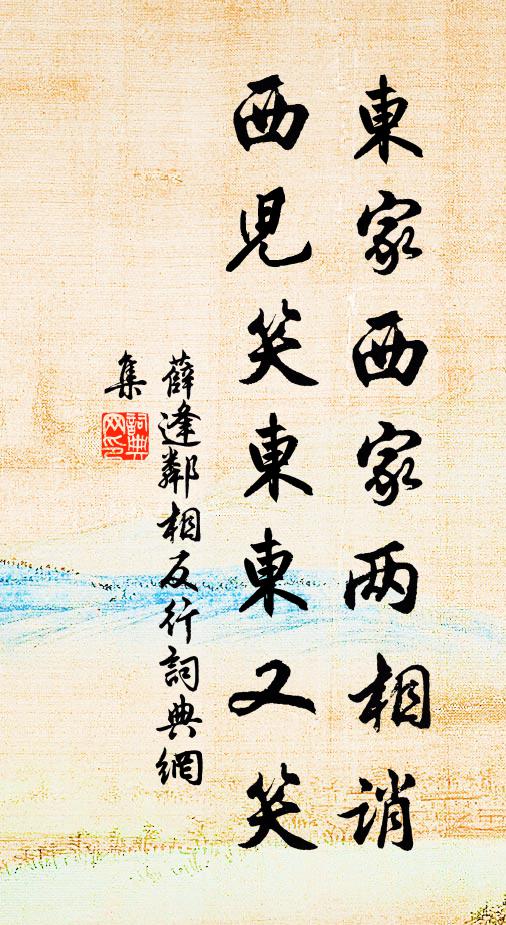 東家西家两相誚
西児笑東東又笑
薛逢鄰相反行詞典網
集
詞典
网印